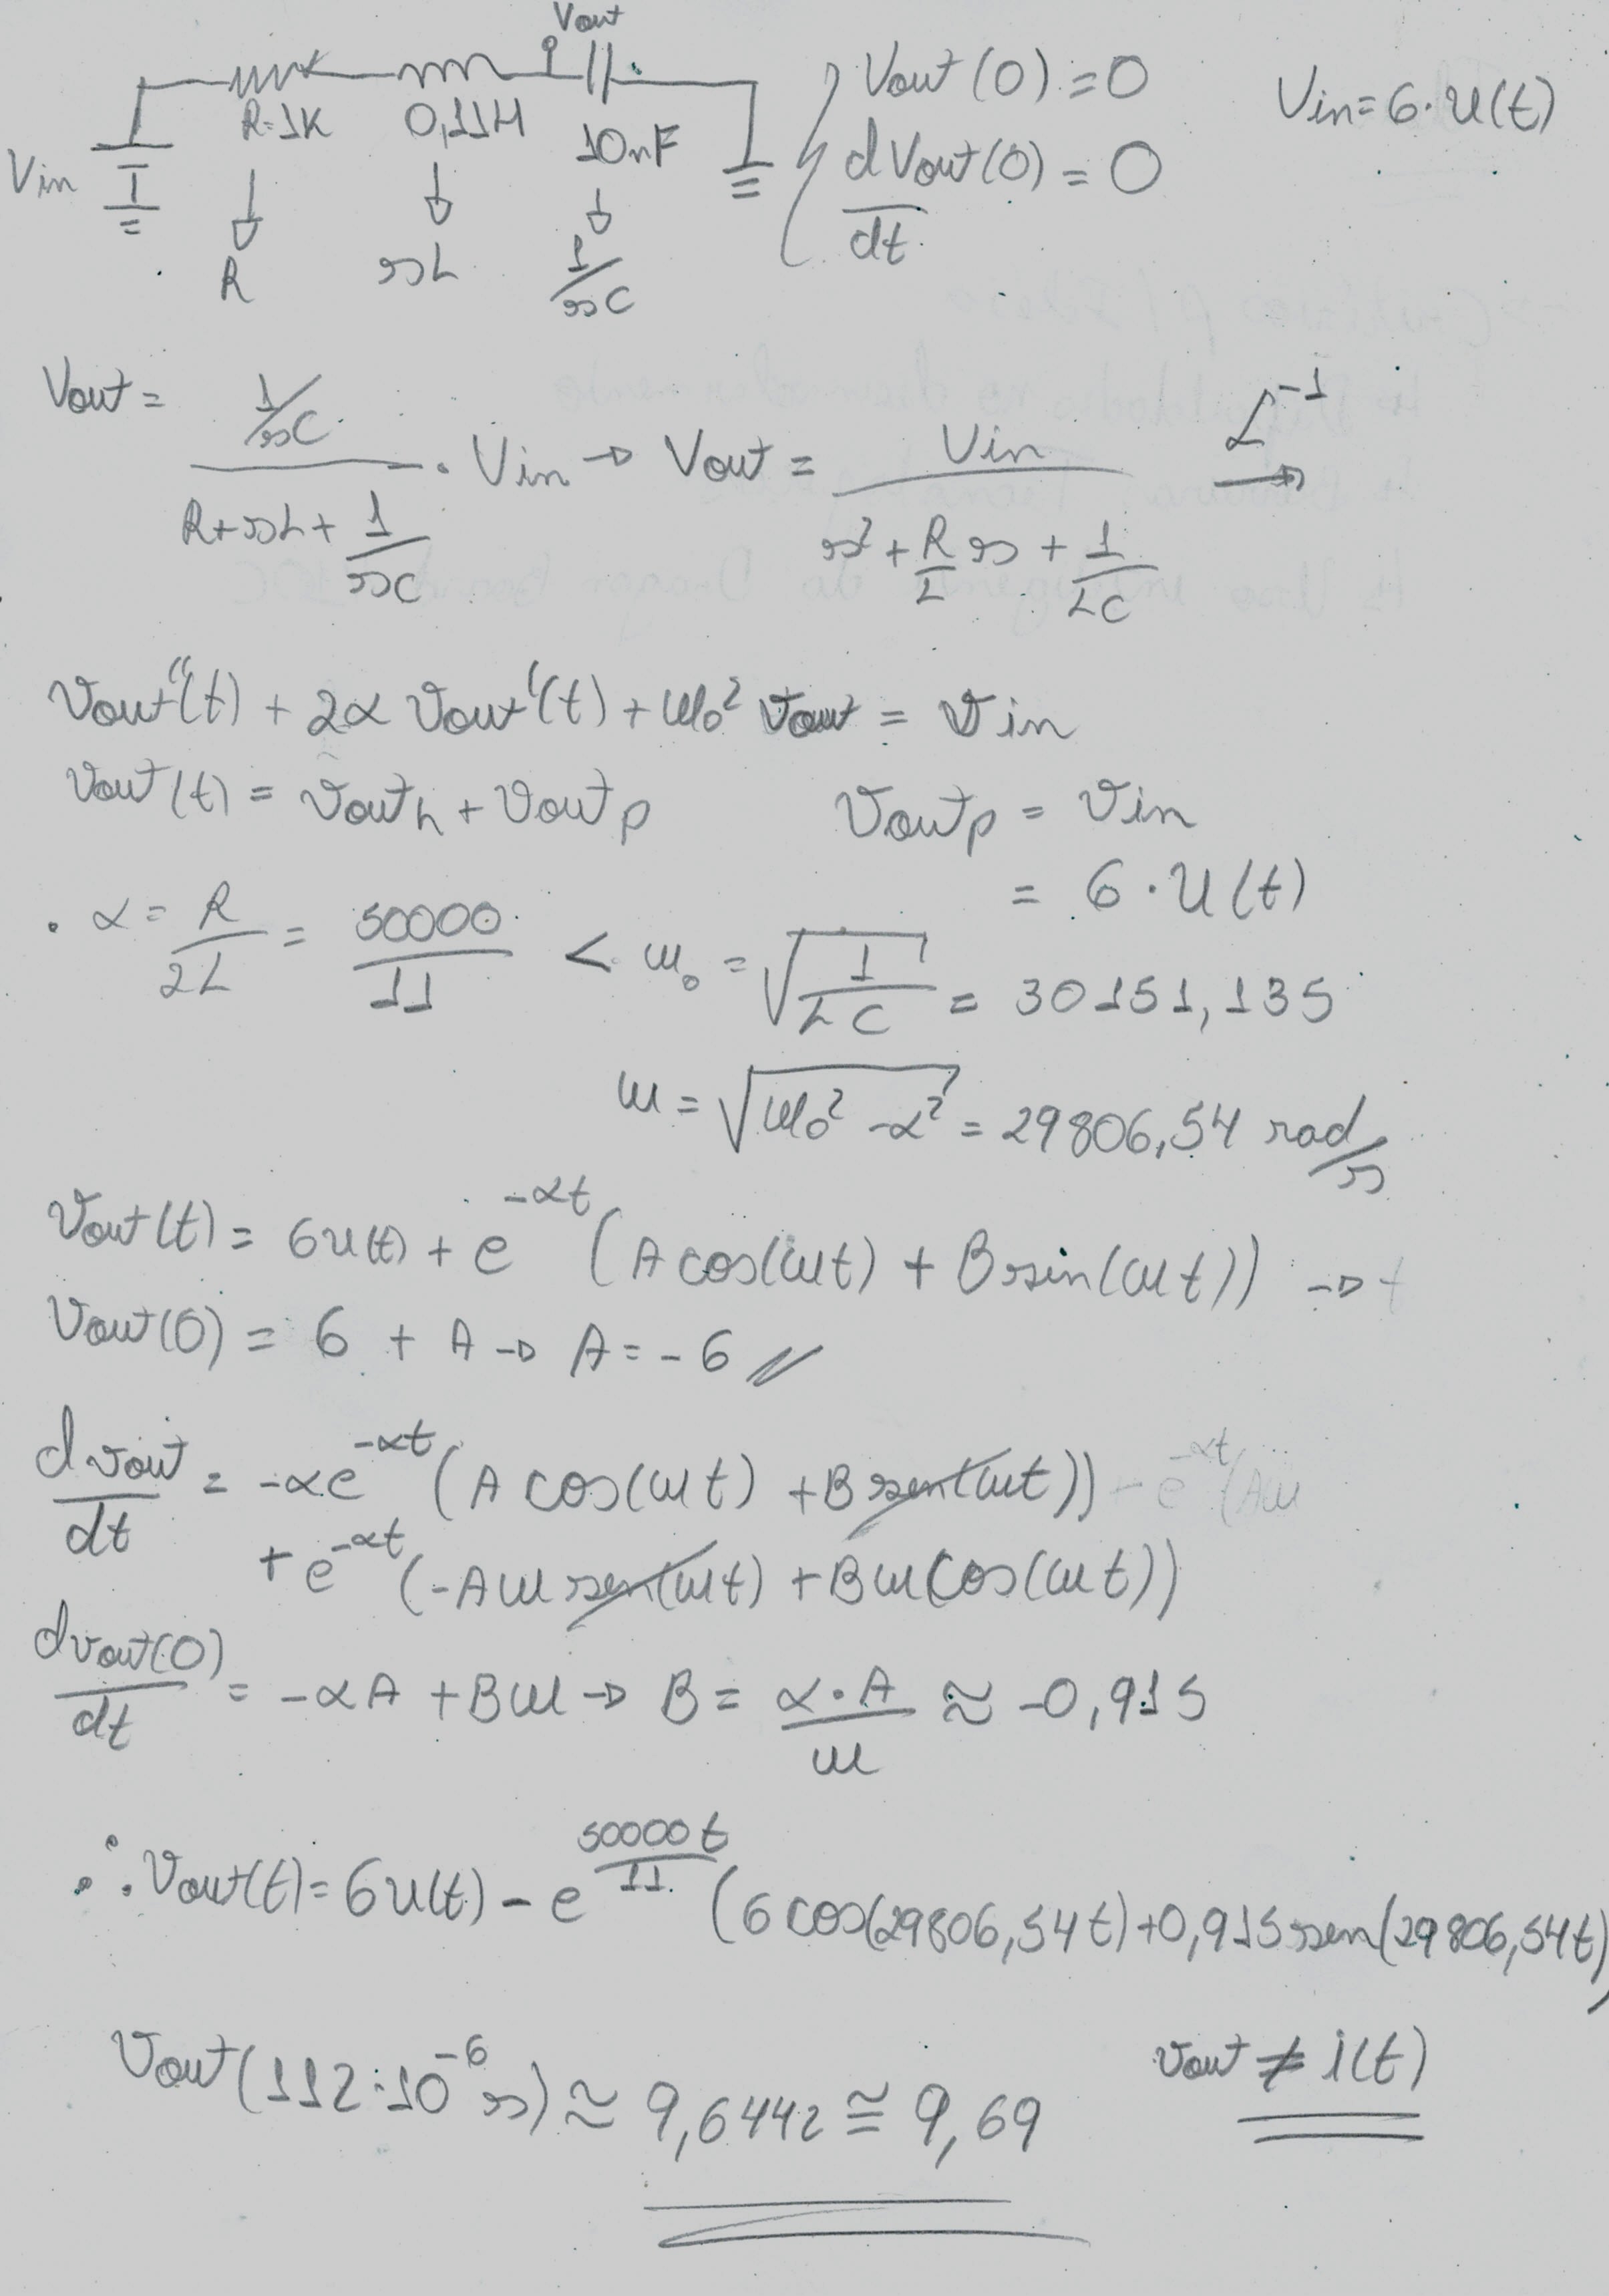 Vout
Vout(0) = 0
Vin = 6·u(t)
R=1K 0,11H 10nF
Vin
dVout(0)/dt = 0
R sL 1/sC
Vout = (1/sC)/(R+sL+1/sC) · Vin → Vout = Vin/(s² + R/L s + 1/LC) ℒ⁻¹ →
Vout''(t) + 2α Vout'(t) + ω₀² Vout = Vin
Vout(t) = Vout h + Vout p Vout p = Vin
= 6·u(t)
· α = R/2L = 50000/11 < ω₀ = √(1/LC) = 30151,135
ω = √(ω₀² - α²) = 29806,54 rad/s
Vout(t) = 6u(t) + e^-αt (A cos(ωt) + B sin(ωt)) →
Vout(0) = 6 + A → A = -6 //
dvout/dt = -αe^-αt (A cos(ωt) + B sen(ωt)) - e^-αt (Aω
+ e^-αt (-Aω sen(ωt) + Bω cos(ωt))
dvout(0)/dt = -αA + Bω → B = α·A/ω ≈ -0,915
∴ Vout(t) = 6u(t) - e^50000t/11 (6 cos(29806,54t) + 0,915 sen(29806,54t)
Vout(112·10⁻⁶ s) ≈ 9,6442 ≅ 9,69 Vout ≠ i(t)